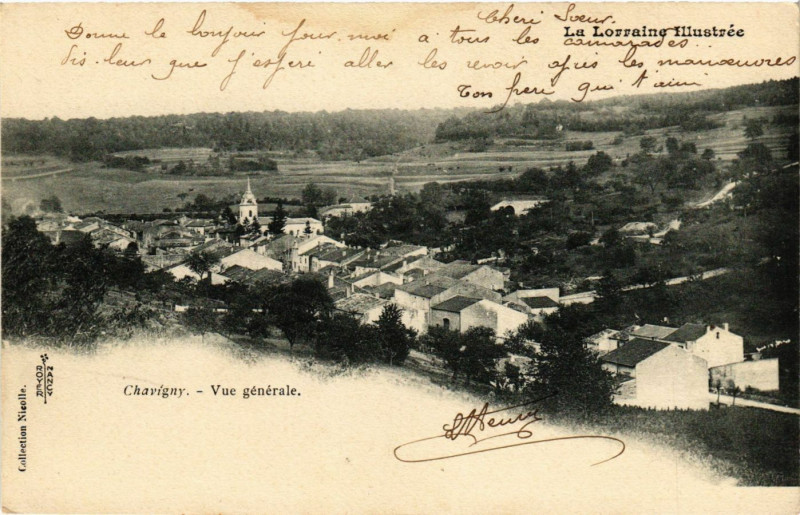 Chère Soeur.
La Lorraine Illustrée
Donne le bonjour pour moi à tous les camarades.
dis-leur que j'espère aller les revoir après les manœuvres
Ton frère qui t'aime
Chavigny. - Vue générale.
Collection Nicolle.
ROYER
NANCY